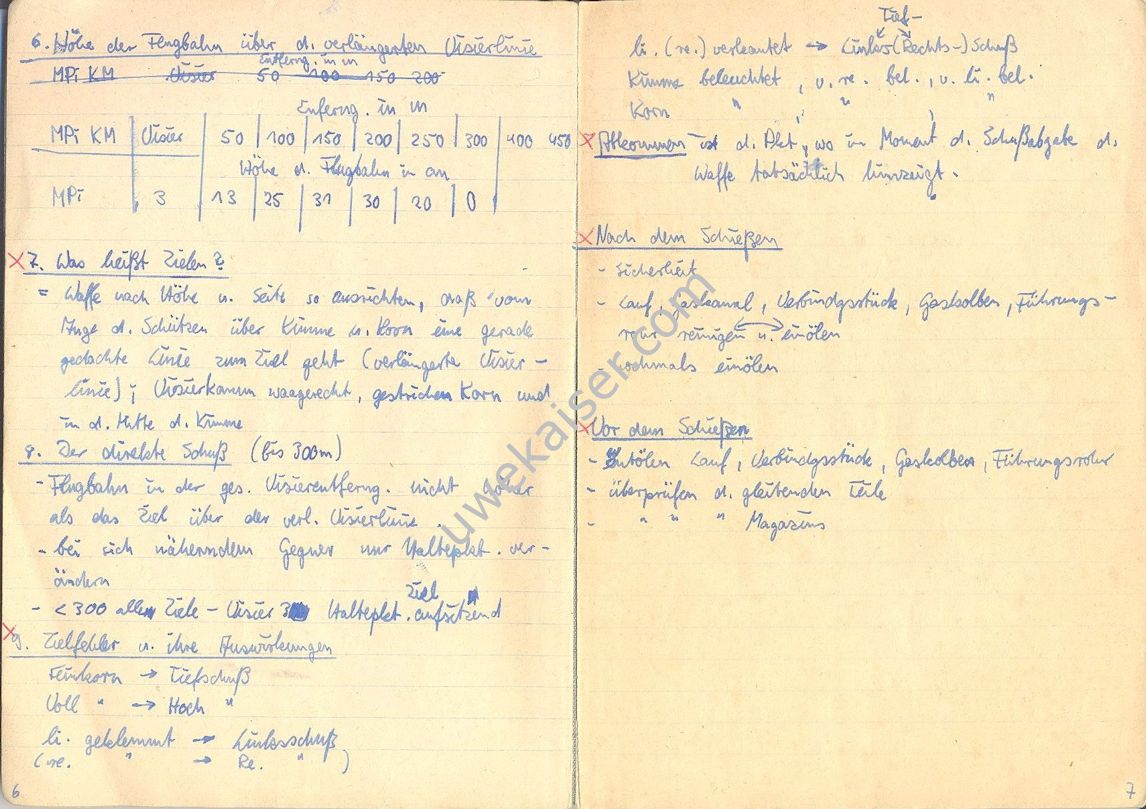 6. Höhe der Flugbahn über d. verlängerten Visierlinie
Entferng. in m
MPi KM Visier 50 100 150 200
Enferng. in m
MPi KM Visier 50 100 150 200 250 300 400 450
Höhe d. Flugbahn in cm
MPi 3 13 25 31 30 20 0
x 7. Was heißt Zielen?
= Waffe nach Höhe u. Seite so ausrichten, daß vom
Auge d. Schützen über Kimme u. Korn eine gerade
gedachte Linie zum Ziel geht (verlängerte Visier-
linie); Visierkamm waagerecht, gestrichen Korn und
in d. Mitte d. Kimme
8. Der direkte Schuß (bis 300m)
- Flugbahn in der ges. Visierentferng. nicht höher
als das Ziel über der verl. Visierlinie
- bei sich näherndem Gegner nur Haltepkt. ver-
ändern
Ziel
- < 300 alle Ziele - Visier 3 Haltepkt. aufsitzend
x 9. Zielfehler u. ihre Auswirkungen
Feinkorn → Tiefschuß
Voll " → Hoch "
li. geklemmt → Linksschuß
(re. " → Re. ")
6
Tief-
li. (re.) verkantet → Links(Rechts-)Schuß
Kimme beleuchtet, v. re. bel., v. li. bel.
Korn " , " , "
x Abkommen ist d. Pkt., wo im Moment d. Schußabgabe d.
Waffe tatsächlich hinzeigt.
x Nach dem Schießen
- Sicherheit
- Lauf, Gaskanal, Verbindgsstücke, Gaskolben, Führungs-
rohr reinigen u. einölen
- nochmals einölen
x Vor dem Schießen
- Entölen Lauf, Verbindgsstücke, Gaskolben, Führungsrohr
- überprüfen d. gleitenden Teile
- " " " Magazins
7
uwekaiser.com